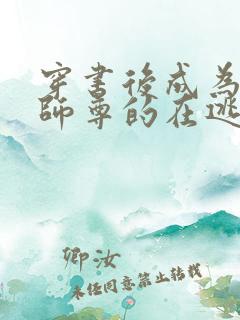 穿書後成為
師尊的在逃
卿汝
未经同意禁止转载